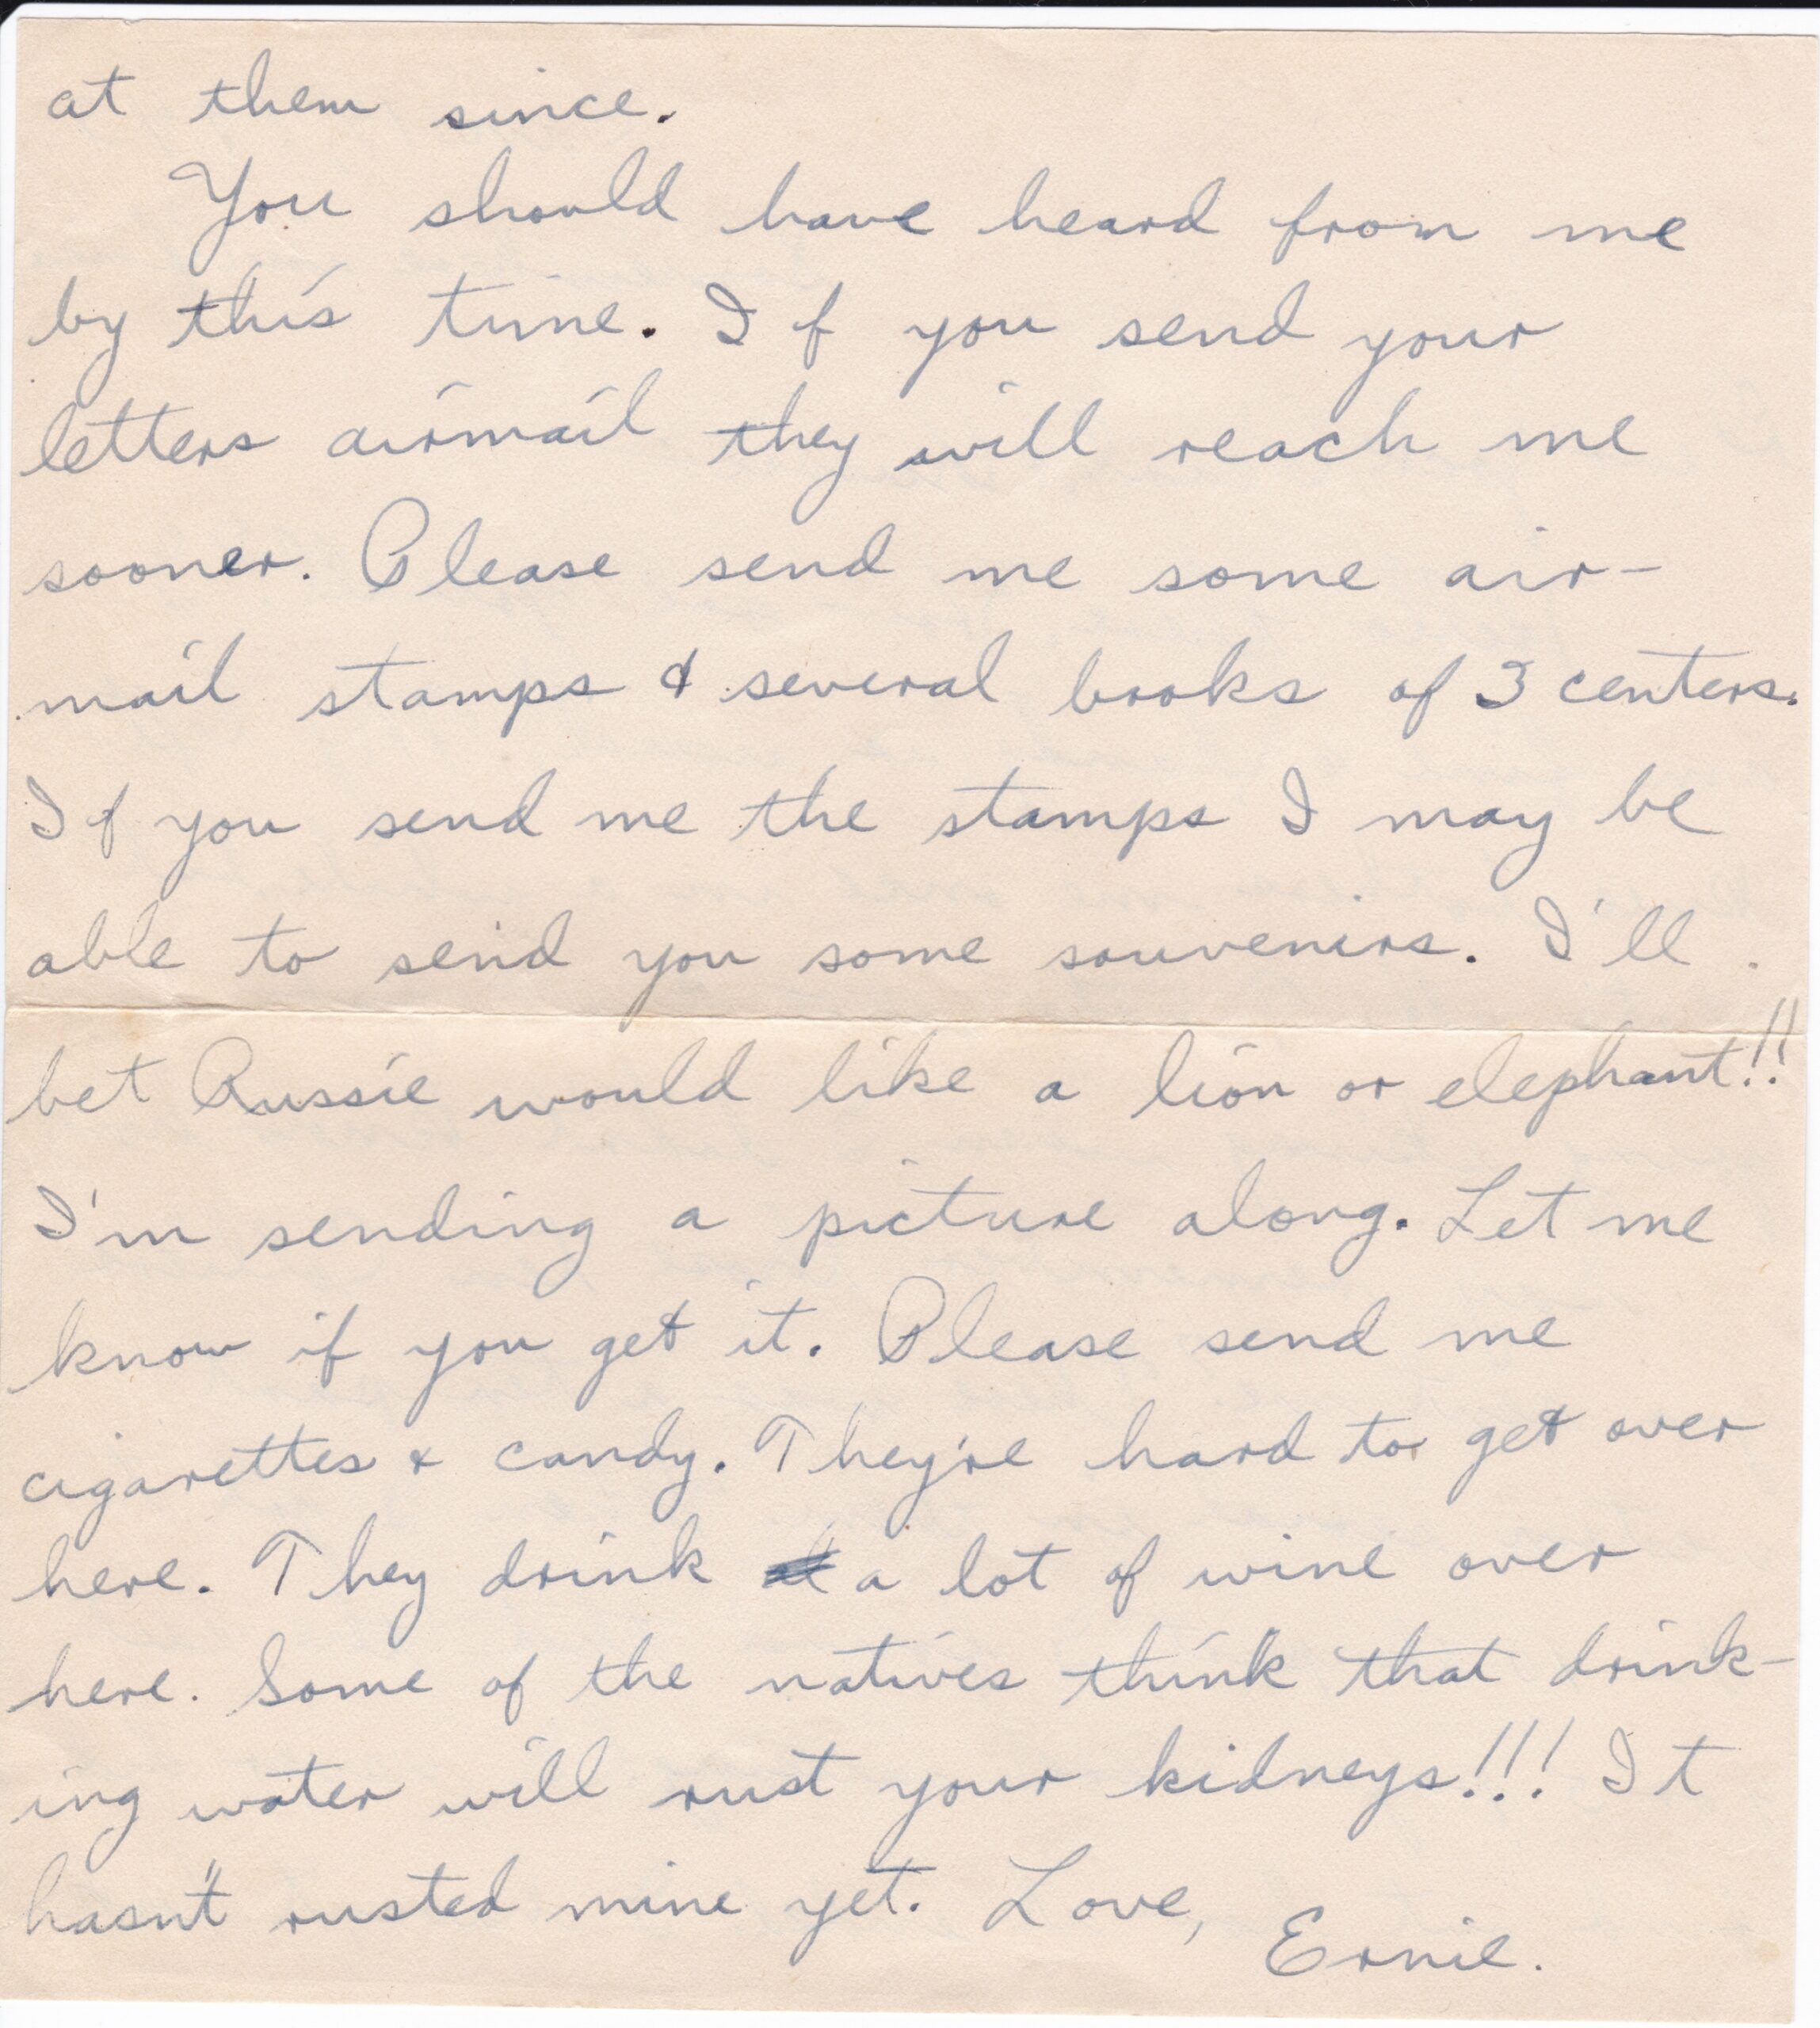 at them since.
You should have heard from me
by this time. If you send your
letters airmail they will reach me
sooner. Please send me some air-
mail stamps & several books of 3 centers.
If you send me the stamps I may be
able to send you some souvenirs. I'll
bet Russie would like a lion or elephant!!
I'm sending a picture along. Let me
know if you get it. Please send me
cigarettes & candy. They're hard to get over
here. They drink a lot of wine over
here. Some of the natives think that drink-
ing water will rust your kidneys!!! It
hasn't rusted mine yet. Love,
Ernie.